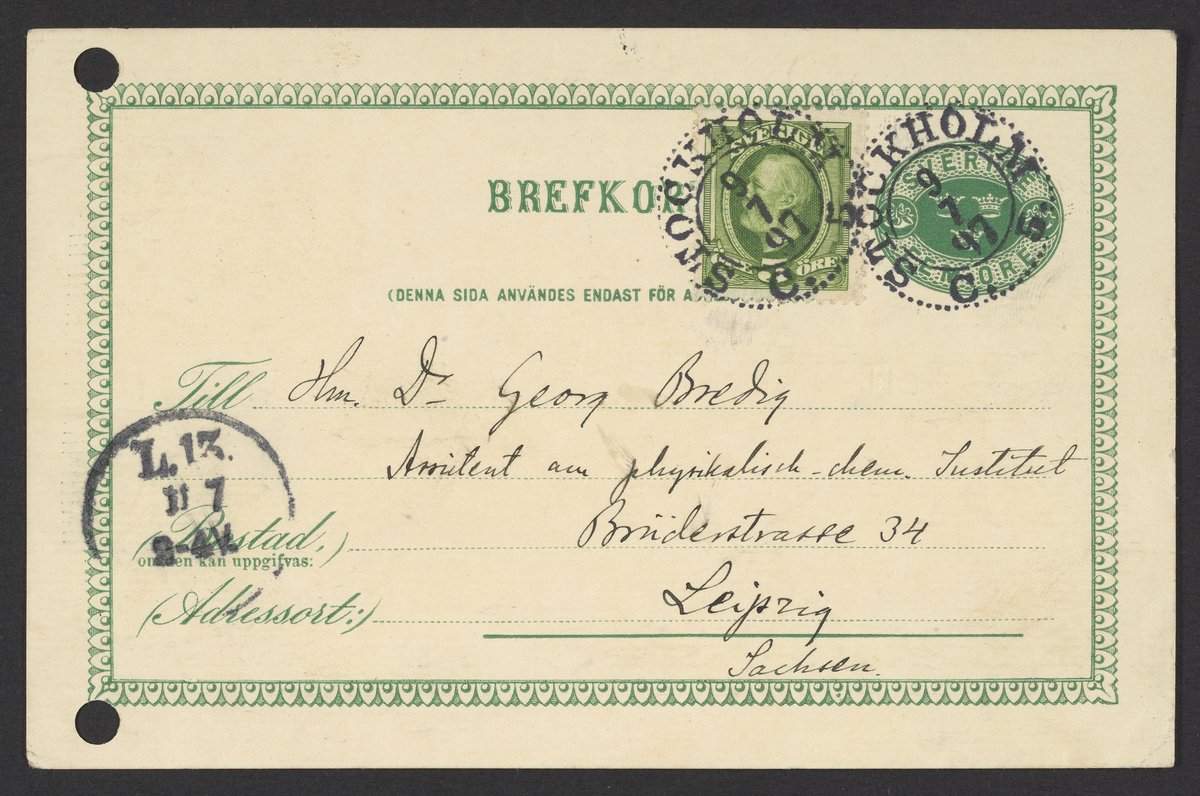 BREFKOR
SVERIGE
ÖRE
STOCKHOLM 5.
9
7
97
C.
SVERIGE
FEM ÖRE
STOCKHOLM 5.
9
7
97
C.
(DENNA SIDA ANVÄNDES ENDAST FÖR A
Till Hrn. Dr Georg Bredig
Assistent am physikalisch-chem. Institut
L. 13.
11 7
8-9V.
(Bostad,) Brüderstrasse 34
om den kan uppgifvas:
(Adressort:) Leipzig
Sachsen.